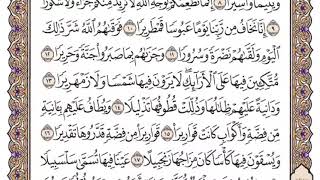 وَيَتِيمًا وَأَسِيرًا ۝٨ إِنَّمَا نُطْعِمُكُمْ لِوَجْهِ ٱللَّهِ لَا نُرِيدُ مِنكُمْ جَزَآءً وَلَا شُكُورًا
۝٩ إِنَّا نَخَافُ مِن رَّبِّنَا يَوْمًا عَبُوسًا قَمْطَرِيرًا ۝١٠ فَوَقَىٰهُمُ ٱللَّهُ شَرَّ ذَٰلِكَ
ٱلْيَوْمِ وَلَقَّىٰهُمْ نَضْرَةً وَسُرُورًا ۝١١ وَجَزَىٰهُم بِمَا صَبَرُوا۟ جَنَّةً وَحَرِيرًا ۝١٢
مُّتَّكِـِٔينَ فِيهَا عَلَى ٱلْأَرَآئِكِ لَا يَرَوْنَ فِيهَا شَمْسًا وَلَا زَمْهَرِيرًا ۝١٣
وَدَانِيَةً عَلَيْهِمْ ظِلَٰلُهَا وَذُلِّلَتْ قُطُوفُهَا تَذْلِيلًا ۝١٤ وَيُطَافُ عَلَيْهِم بِـَٔانِيَةٍ
مِّن فِضَّةٍ وَأَكْوَابٍ كَانَتْ قَوَارِيرَا۠ ۝١٥ قَوَارِيرَا۟ مِن فِضَّةٍ قَدَّرُوهَا تَقْدِيرًا ۝١٦
وَيُسْقَوْنَ فِيهَا كَأْسًا كَانَ مِزَاجُهَا زَنجَبِيلًا ۝١٧ عَيْنًا فِيهَا تُسَمَّىٰ سَلْسَبِيلًا